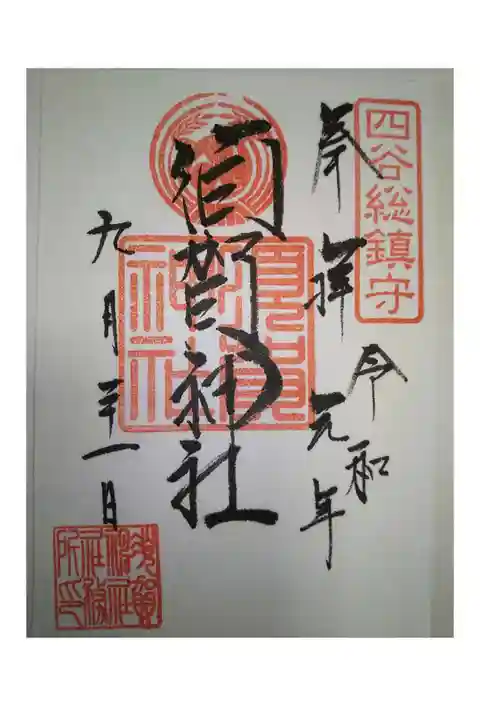 四谷総鎮守
奉拝
令和元年
須賀神社
須賀神社
九月二十一日
須賀
神社
社務
所印